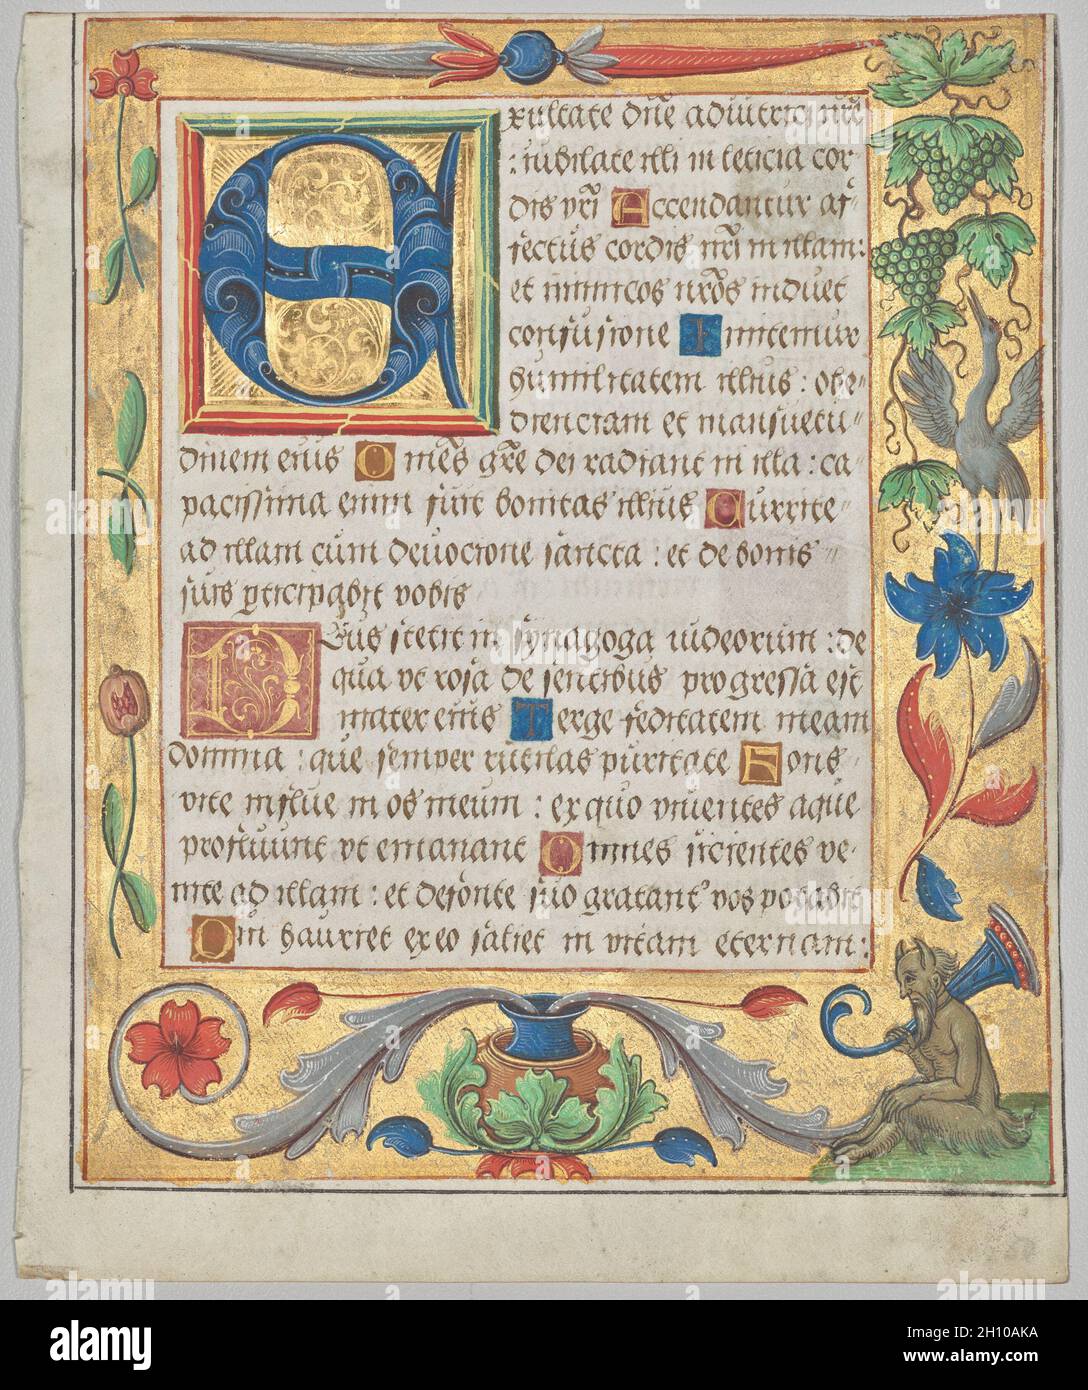 Exultate dñe adiutrici nr̃e
: iubilate illi in leticia cor-
dis vr̃i Accendantur af-
fectus cordis nr̃i in illam:
et inimicos nr̃os induet
confusione Imitemur
humilitatem illius: obe-
dientiam et mansuetu-
dinem eius Omẽs gr̃e dei radiant in illa: ca
pacissima enim fuit bonitas illius Currite
ad illam cum deuocione sancta: et de bonis
suis participabit vobis
Deus stetit in synagoga iudeorum: de
qua ut rosa de sentibus progressa est
mater eius Terge feditatem meam
domina: que semper rutilas puritate Fons
vite influe in os meum: ex quo viuentes aque
profluunt ut emanant Omnes sicientes ve-
nite ad illam: et de fonte suo gratant' vos potabit
Qui hauriet ex eo saliet in vitam eternam:
alamy
a
alamy
Image ID: 2H10AKA
www.alamy.com